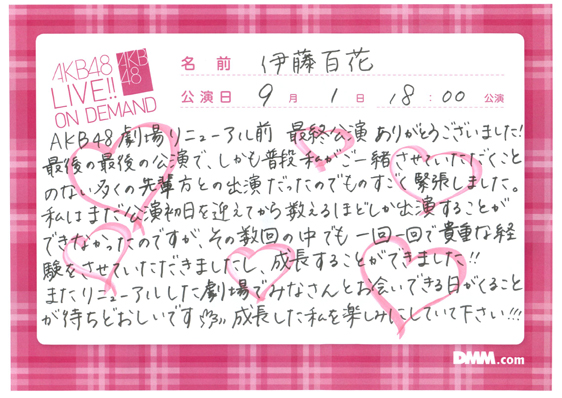 AKB48
LIVE!!
ON DEMAND
AKB
48
名前 伊藤百花
公演日 9月 1日 18:00 公演
AKB48劇場リニューアル前 最終公演 ありがとうございました!
最後の最後の公演で、しかも普段私がご一緒させていただくこと
のない多くの先輩方との出演だったのでものすごく緊張しました。
私はまだ公演初日を迎えてから数えるほどしか出演することが
できなかったのですが、その数回の中でも一回一回で貴重な経
験をさせていただきましたし、成長することができました!!
またリニューアルした劇場でみなさんとお会いできる日がくること
が待ちどおしいです 成長した私を楽しみにしていて下さい!!!
DMM.com